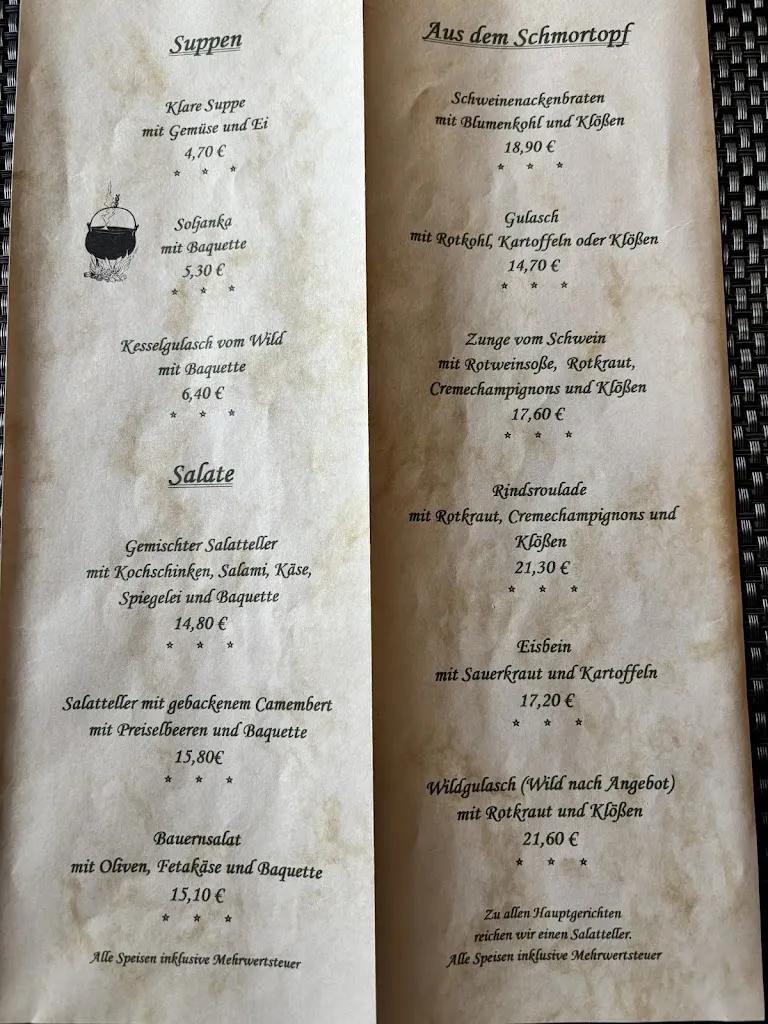 Suppen
Klare Suppe
mit Gemüse und Ei
4,70 €
* * *
Soljanka
mit Baquette
5,30 €
* * *
Kesselgulasch vom Wild
mit Baquette
6,40 €
* * *
Salate
Gemischter Salatteller
mit Kochschinken, Salami, Käse,
Spiegelei und Baquette
14,80 €
* * *
Salatteller mit gebackenem Camembert
mit Preiselbeeren und Baquette
15,80€
* * *
Bauernsalat
mit Oliven, Fetakäse und Baquette
15,10 €
* * *
Alle Speisen inklusive Mehrwertsteuer
Aus dem Schmortopf
Schweinenackenbraten
mit Blumenkohl und Klößen
18,90 €
* * *
Gulasch
mit Rotkohl, Kartoffeln oder Klößen
14,70 €
* * *
Zunge vom Schwein
mit Rotweinsoße, Rotkraut,
Cremechampignons und Klößen
17,60 €
* * *
Rindsroulade
mit Rotkraut, Cremechampignons und
Klößen
21,30 €
* * *
Eisbein
mit Sauerkraut und Kartoffeln
17,20 €
* * *
Wildgulasch (Wild nach Angebot)
mit Rotkraut und Klößen
21,60 €
* * *
Zu allen Hauptgerichten
reichen wir einen Salatteller.
Alle Speisen inklusive Mehrwertsteuer